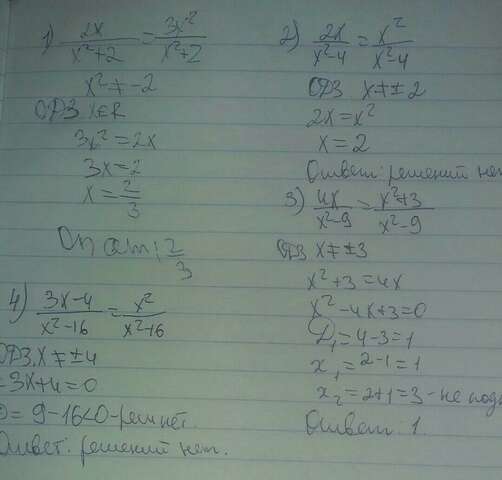 1) 2x/(x²+2) = 3x²/(x²+2)
x² ≠ -2
ОДЗ X∈R
3x² = 2x
3x = 2
x = 2/3
Ответ: 2/3
2) 2x/(x²-4) = x²/(x²-4)
ОДЗ x ≠ ± 2
2x = x²
x = 2
Ответ: решений нет
3) 4x/(x²-9) = (x²+3)/(x²-9)
ОДЗ x ≠ ±3
x²+3 = 4x
x²-4x+3=0
D₁ = 4-3 = 1
x₁ = 2-1 = 1
x₂ = 2+1 = 3 - не подх
Ответ: 1.
4) (3x-4)/(x²-16) = x²/(x²-16)
ОДЗ. X ≠ ±4
-3x+4=0
D = 9-16<0-реш нет.
Ответ: решений нет.